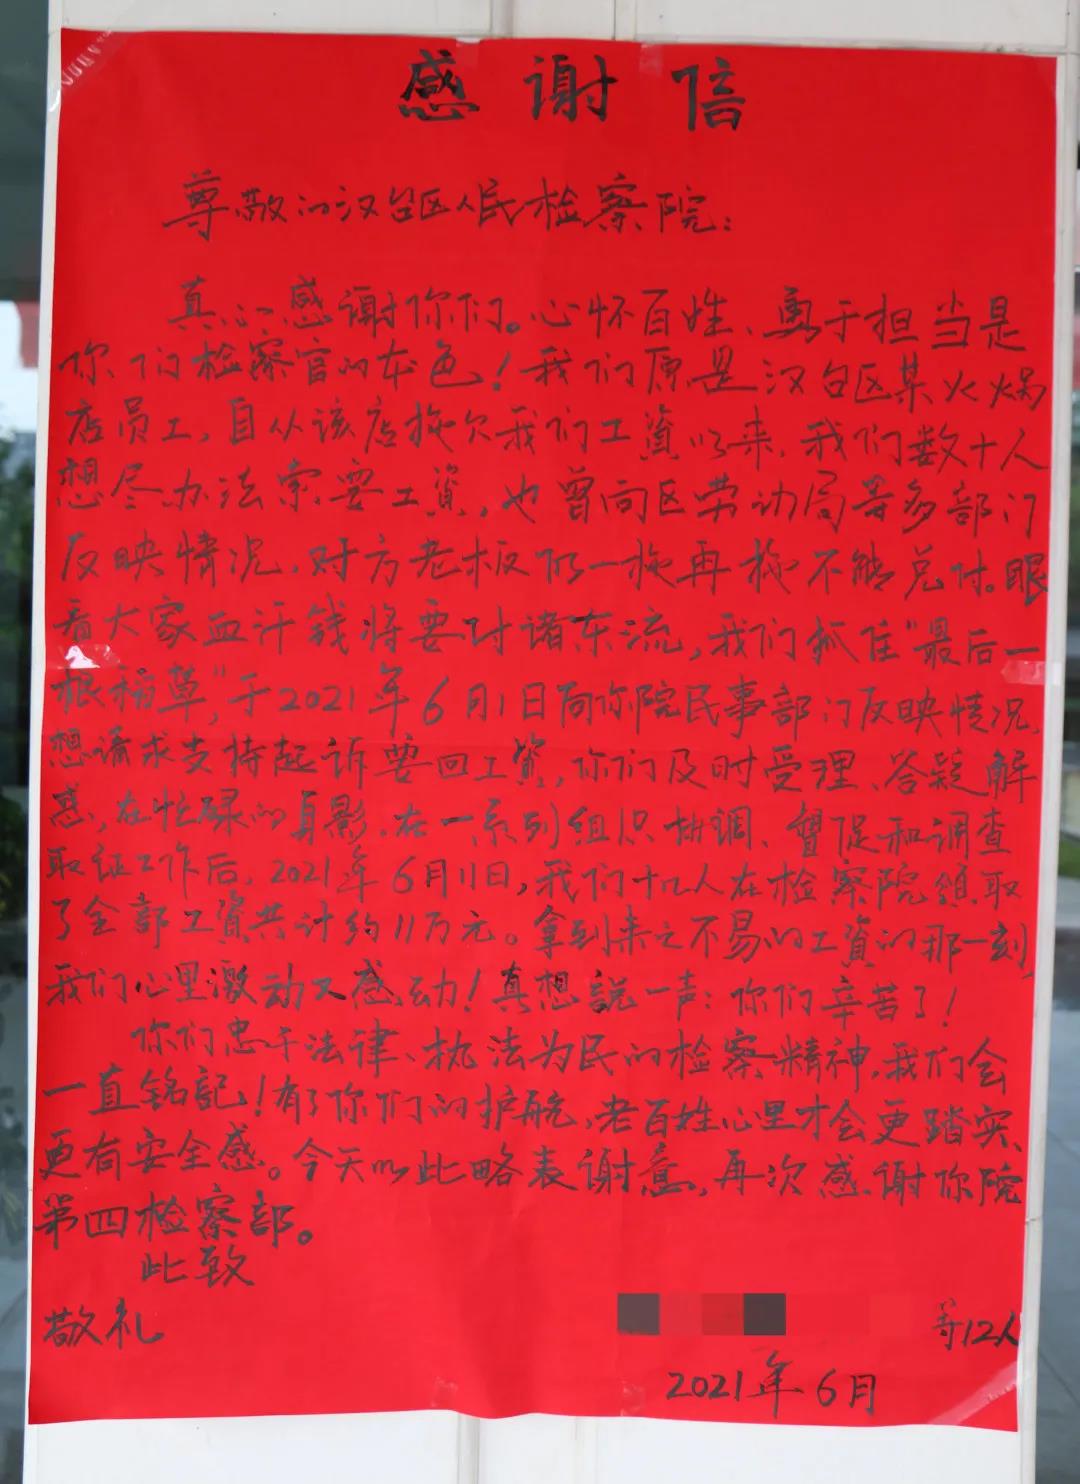 感谢信
尊敬的汉台区人民检察院：
真心感谢你们。心怀百姓、勇于担当是
你们检察官的本色！我们原是汉台区某火锅
店员工，自从该店拖欠我们工資以来，我们数十人
想尽办法索要工資，也曾向区劳动局等多部门
反映情况，对方老板仍一拖再拖不能兑付。眼
看大家血汗钱将要付诸东流，我们抓住“最后一
根稻草”，于2021年6月1日向你院民事部门反映情况
想请求支持起诉要回工資，你们及时受理、答疑解
惑，在忙碌的身影、在一系列组织协调、督促和调查
取证工作后，2021年6月11日，我们十几人在检察院领取
了全部工資共计约11万元。拿到来之不易的工資的那一刻，
我们心里激动又感动！真想説一声：你们辛苦了！
你们忠于法律、执法为民的检察精神，我们会
一直铭記！有了你们的护航，老百姓心里才会更踏实、
更有安全感。今天以此略表谢意，再次感谢你院
第四检察部。
此致
敬礼
等12人
2021年6月